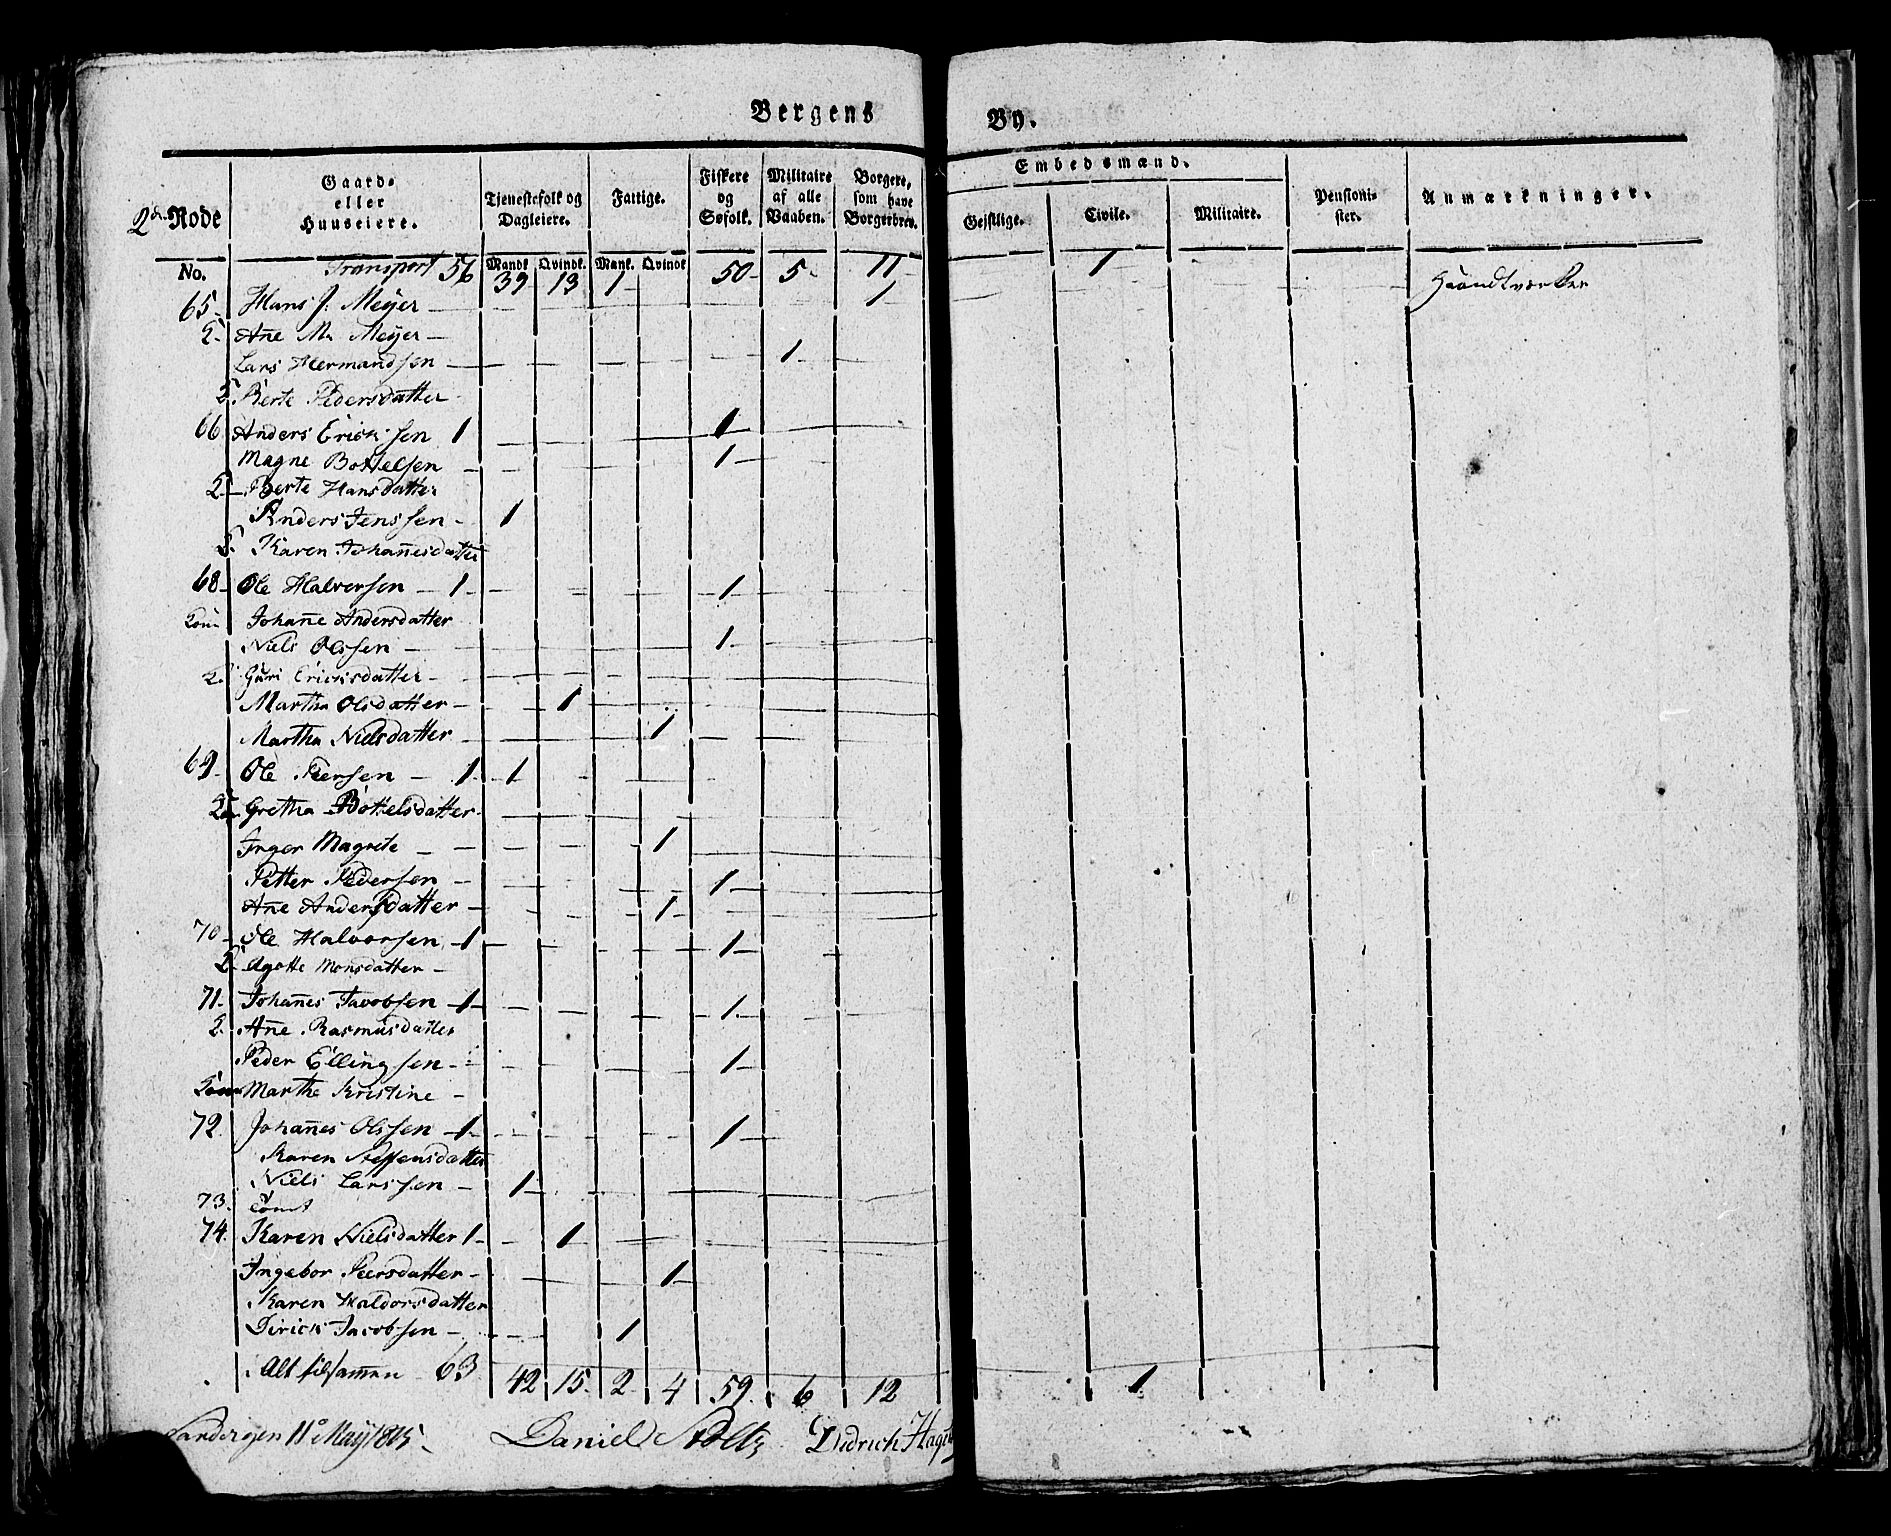 Bergens By.
2den Rode
Gaard-
eller
Huuseiere.
Tjenestefolk og
Dagleiere.
Fattige.
Fiskere
og
Søfolk.
Militaire
af alle
Vaaben.
Borgere,
som have
Borgerbrev.
Embedsmænd.
Geistlige. Civile. Militaire.
Pensioni-
ster.
Anmærkninger.
No. Mandk Qvindk. Mank. Qvindk
Transport 56 39 13 1 50 5 11 1
65 Hans J. Meyer 1 Haandtværker
Ane M. Meyer
Lars Hermandsen 1
Berte Pedersdatter
66 Anders Ericksen 1 1
Magne Bottelsen 1
Berte Hansdatter
Anders Jenssen 1
Karen Johanesdatter
68 Ole Halversen 1 1
Johane Andersdatter
Niels Olssen 1
Guri Ericksdatter
Martha Olsdatter 1
Martha Nielsdatter 1
69 Ole Peersen 1 1
Gretha Bottelsdatter
Inger Magrete 1
Petter Pedersen 1
Ane Andersdatter 1
70 Ole Halvorsen 1 1
Agotte Monsdatter
71. Johanes Jacobsen 1 1
Ane Rasmusdatter
Peder Ellingsen 1
Marthe Kristine
72. Johanes Olssen 1 1
Karen Steffensdatter
Niels Larssen 1
73. Tomt
74. Karen Nielsdatter 1 1
Ingebor Peersdatter 1
Karen Haldorsdatter
Dirick Jacobsen 1
Alt tilsamen 63 42 15 2 4 59 6 12 1
11te May 1815 Daniel Stoltz Didrich